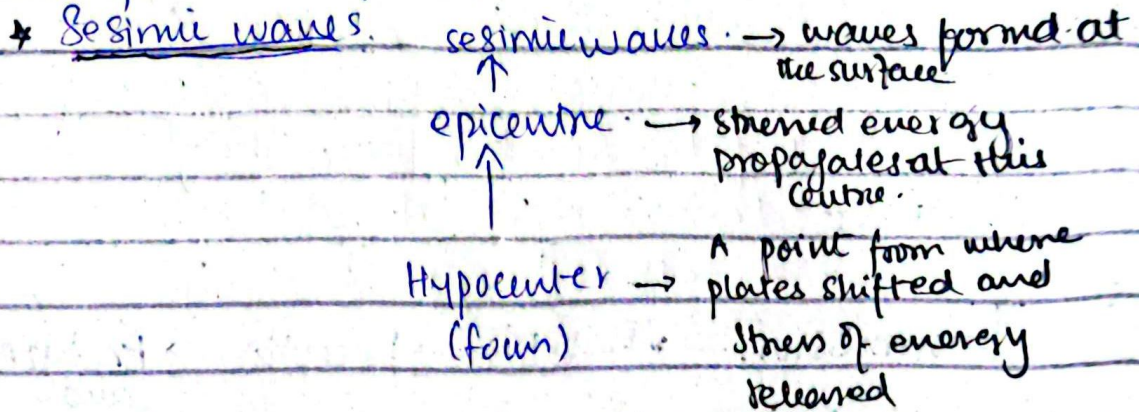 * Sesimic waves. sesimic waves. → waves formd at
the surface
↑
epicentre. → stressed energy
propagates at this
centre.
↑
A point from where
Hypocenter → plates shifted and
(focus) stress of energy
released